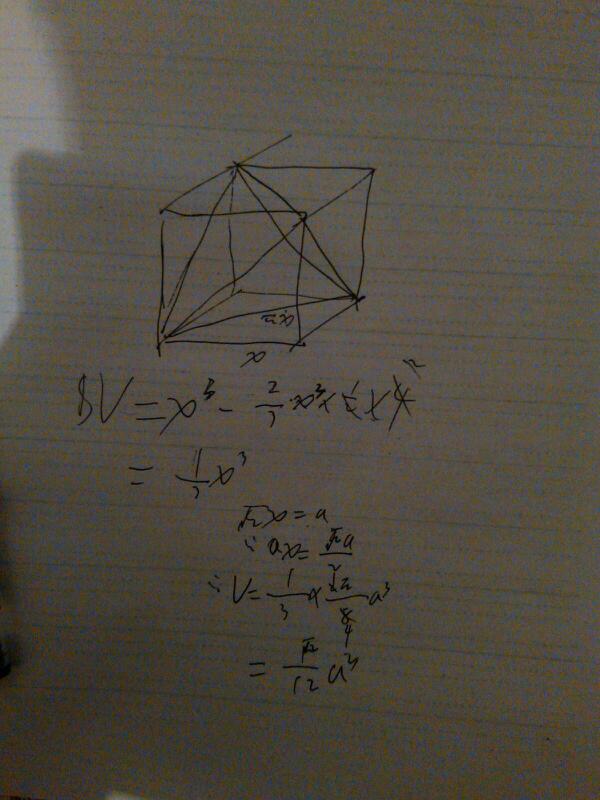 √2x
x
V = x³ - 2/3 x³ × 1/2
= 1/3 x³
√2x = a
∴ x = √2a/2
∴ V = 1/3 × 2√2/8 a³
= √2/12 a³